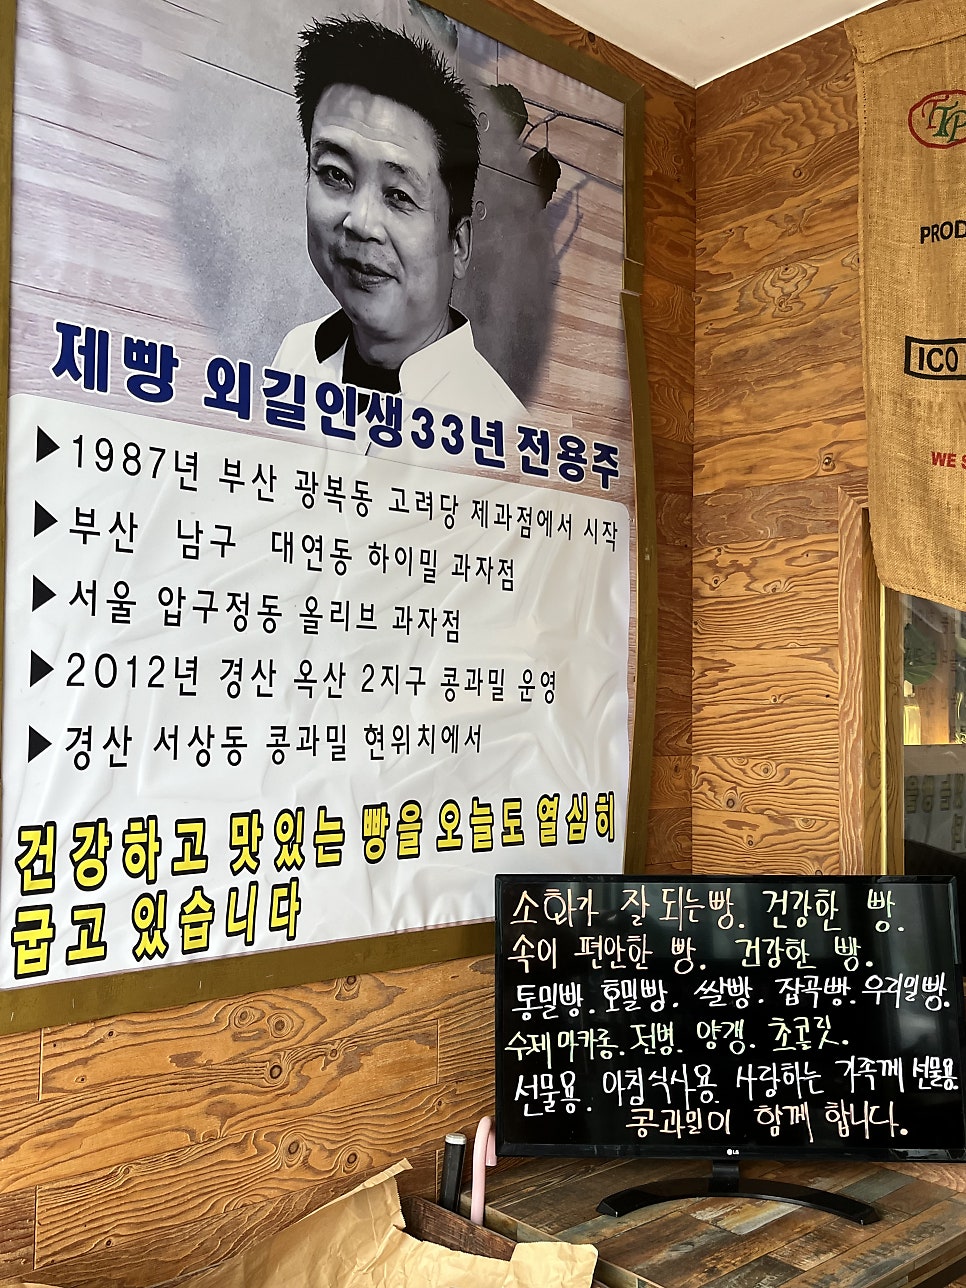 제빵 외길인생33년 전용주
▶1987년 부산 광복동 고려당 제과점에서 시작
▶부산 남구 대연동 하이밀 과자점
▶서울 압구정동 올리브 과자점
▶2012년 경산 옥산 2지구 콩과밀 운영
▶경산 서상동 콩과밀 현위치에서
건강하고 맛있는 빵을 오늘도 열심히
굽고 있습니다
TTP
PROD
ICO
WE S
소화가 잘 되는빵. 건강한 빵.
속이 편안한 빵. 건강한 빵.
통밀빵. 호밀빵. 쌀빵. 잡곡빵. 우리밀빵.
수제 마카롱. 전병. 양갱. 초콜릿.
선물용. 아침식사용. 사랑하는 가족께 선물용.
콩과밀이 함께 합니다.
LG